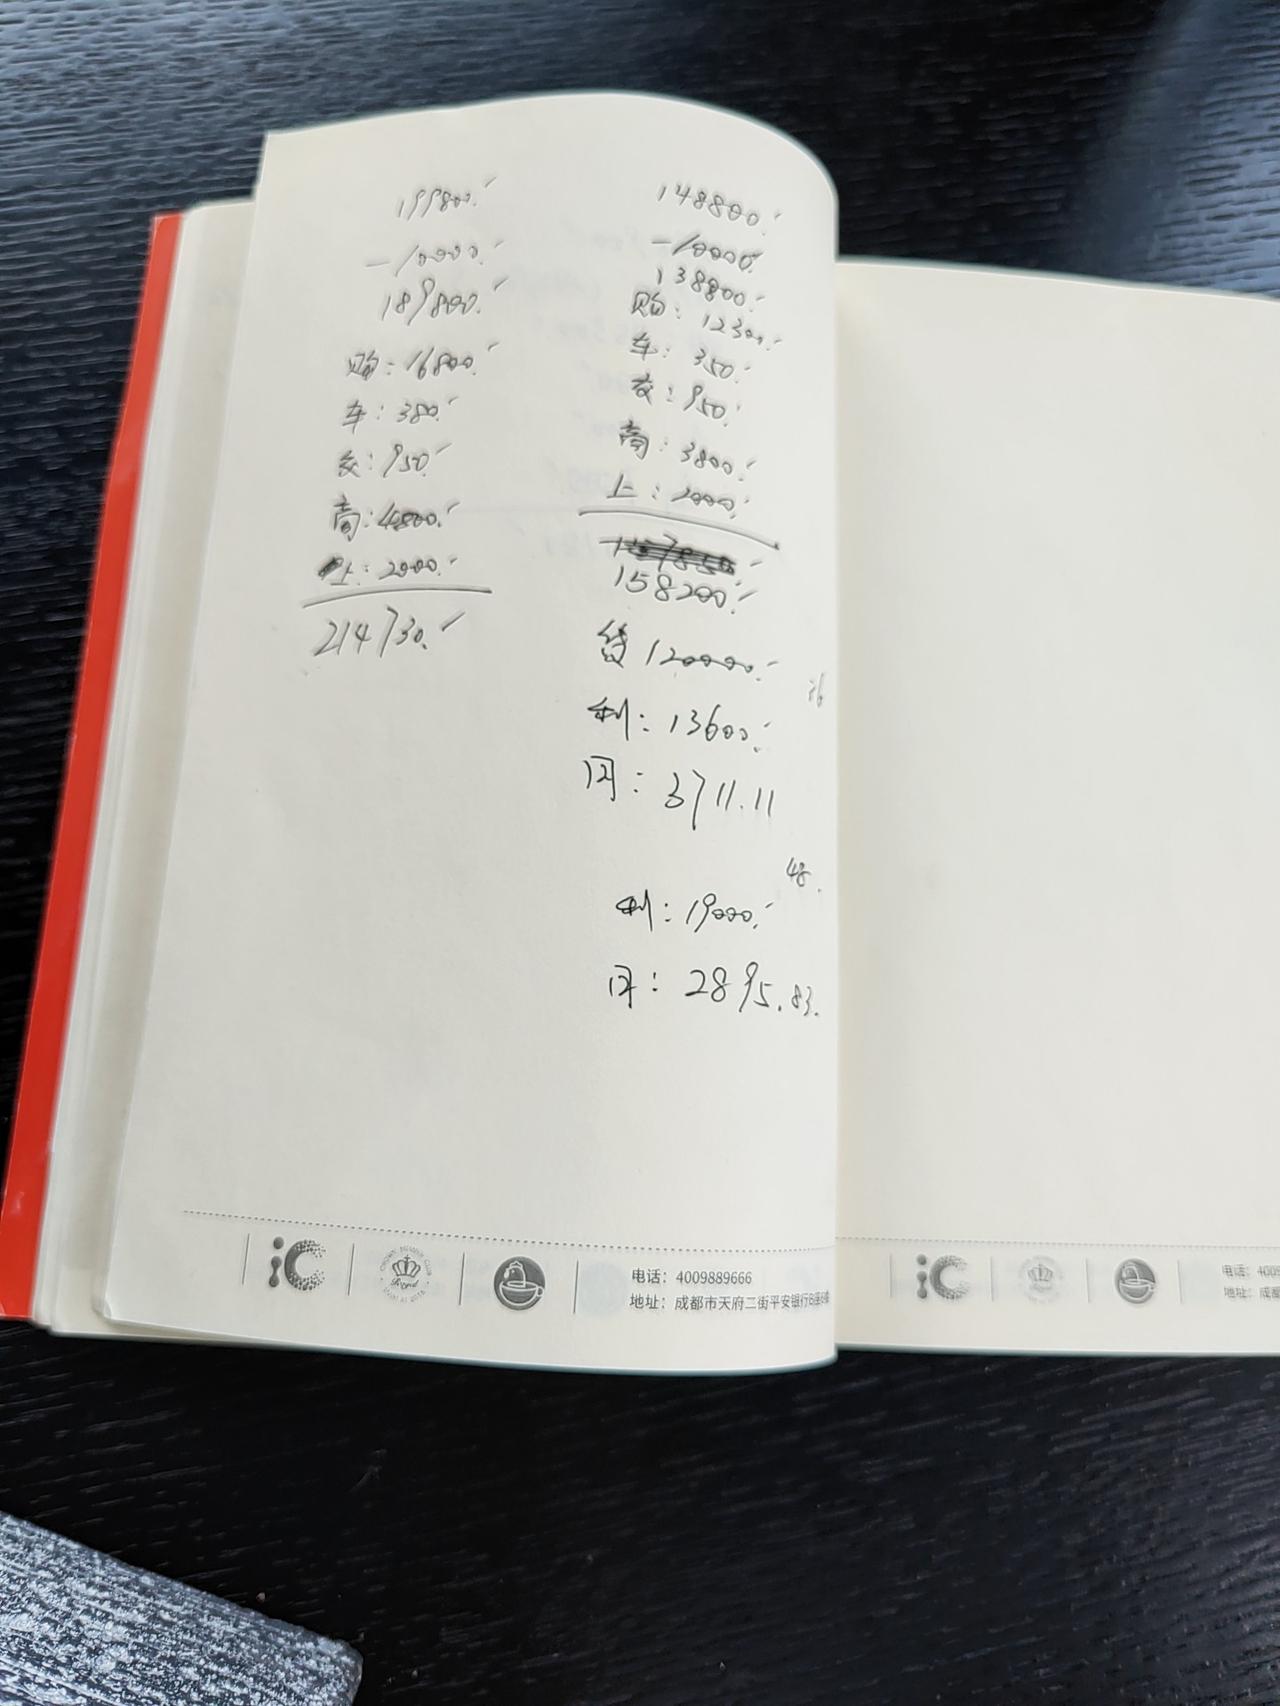 199800.
-10000.
189800.
购:16800.
车:380.
交:950.
商:4800.
上:2000.
214730.
148800.
-10000.
138800.
购:12300.
车:350.
交:950.
商:3800.
上:2000.
158200.
贷120000.
36
利:13600.
月:3711.11
48.
利:19000.
月:2895.83.
iC
Royal
电话:4009889666
地址:成都市天府二街平安银行
iC
电话:4009
地址:成都